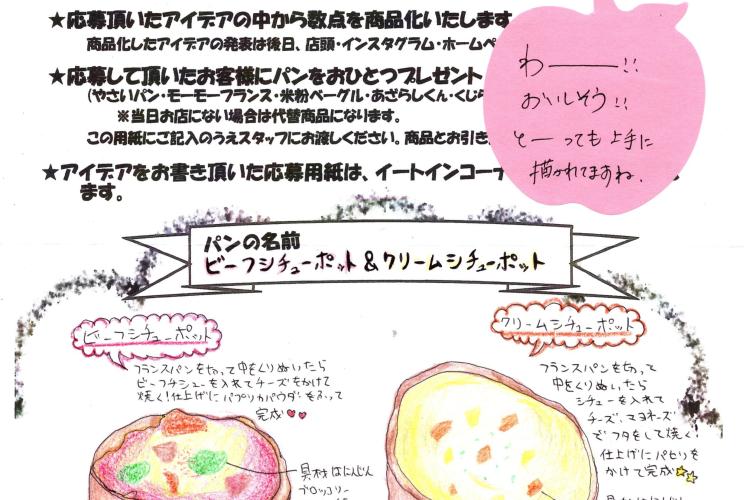 ★応募頂いたアイデアの中から数点を商品化いたします
商品化したアイデアの発表は後日、店頭・インスタグラム・ホームペ
★応募して頂いたお客様にパンをおひとつプレゼント
(やさいパン・モーモーフランス・米粉ベーグル・あざらしくん・くじら
※当日お店にない場合は代替商品になります。
この用紙にご記入のうえスタッフにお渡しください。商品とお引き
★アイデアをお書き頂いた応募用紙は、イートインコーナ
ます。
わーーー!!
おいしそう!!
とーっても上手に
描かれてますね。
パンの名前
ビーフシチューポット&クリームシチューポット
ビーフシチューポット
フランスパンを切って中をくりぬいたら
ビーフシチューを入れてチーズをかけて
焼く!仕上げにパプリカパウダーをふって
完成
具材はにんじん
ブロッコリー
クリームシチューポット
フランスパンを切って
中をくりぬいたら
シチューを入れて
チーズ、マヨネーズ
でフタをして焼く!
仕上げにパセリを
かけて完成
具材はにんじん